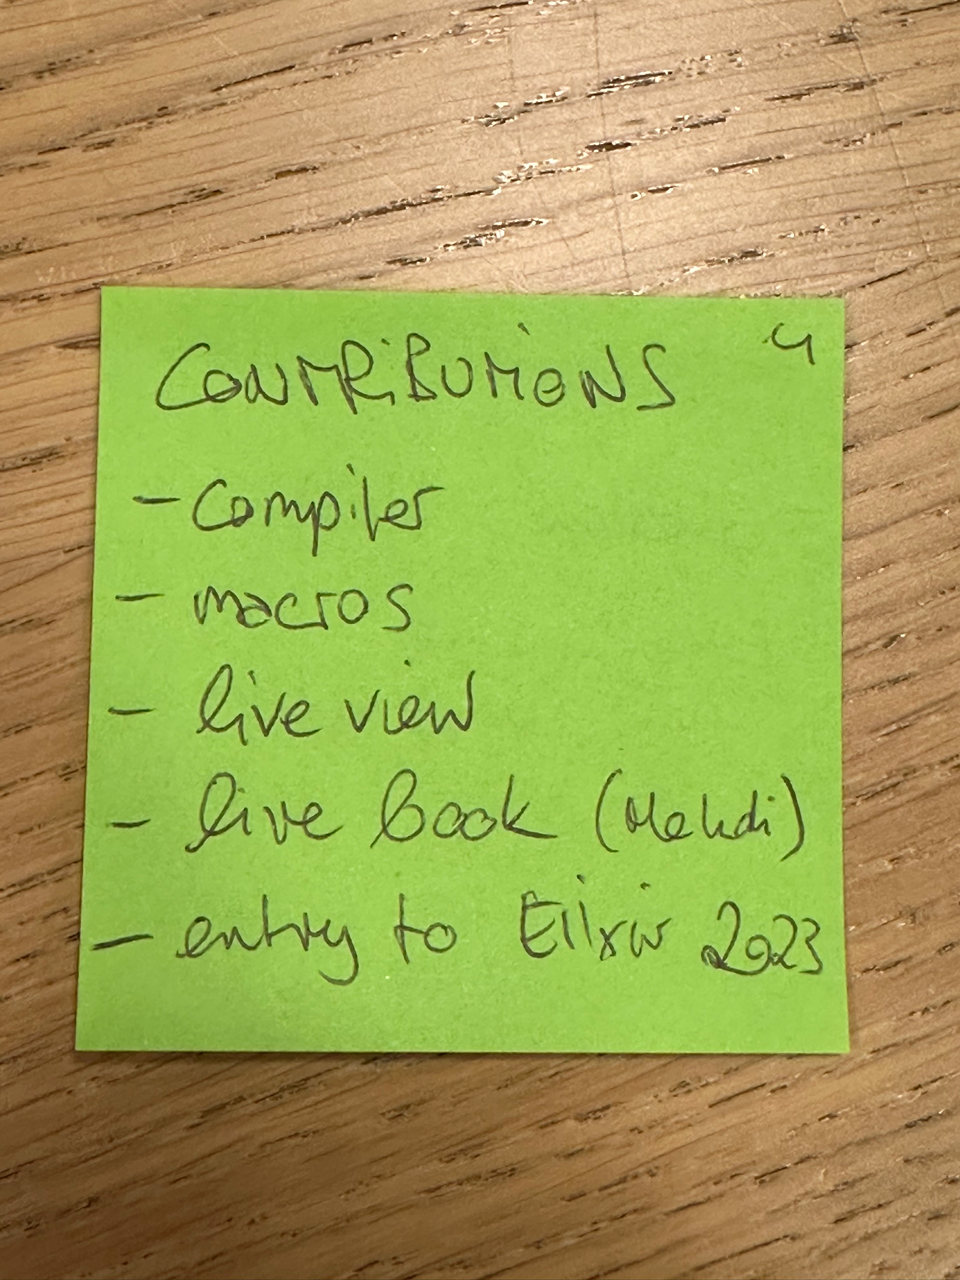 CONTRIBUTIONS 4
- compiler
- macros
- live view
- live book (Mehdi)
- entry to Elixir 2023